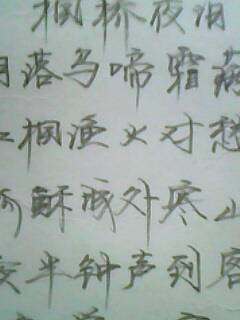 枫桥夜泊
月落乌啼霜满
江枫渔火对愁
城外寒山
夜半钟声到客